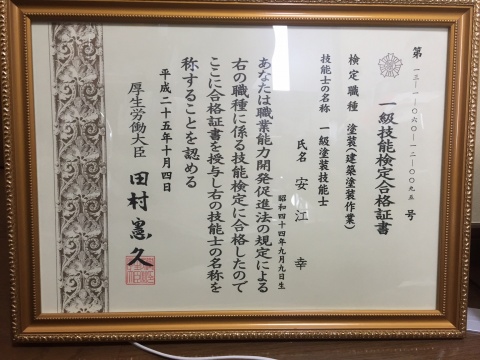 第 一三-一-〇六〇-一二-〇〇九五 号
一級技能検定合格証書
検定職種 塗装(建築塗装作業)
技能士の名称 一級塗装技能士
氏名 安江 幸
昭和四十四年九月九日生
あなたは職業能力開発促進法の規定による
右の職種に係る技能検定に合格したので
ここに合格証書を授与し右の技能士の名称を
称することを認める
平成二十五年十月四日
厚生労働大臣 田村憲久